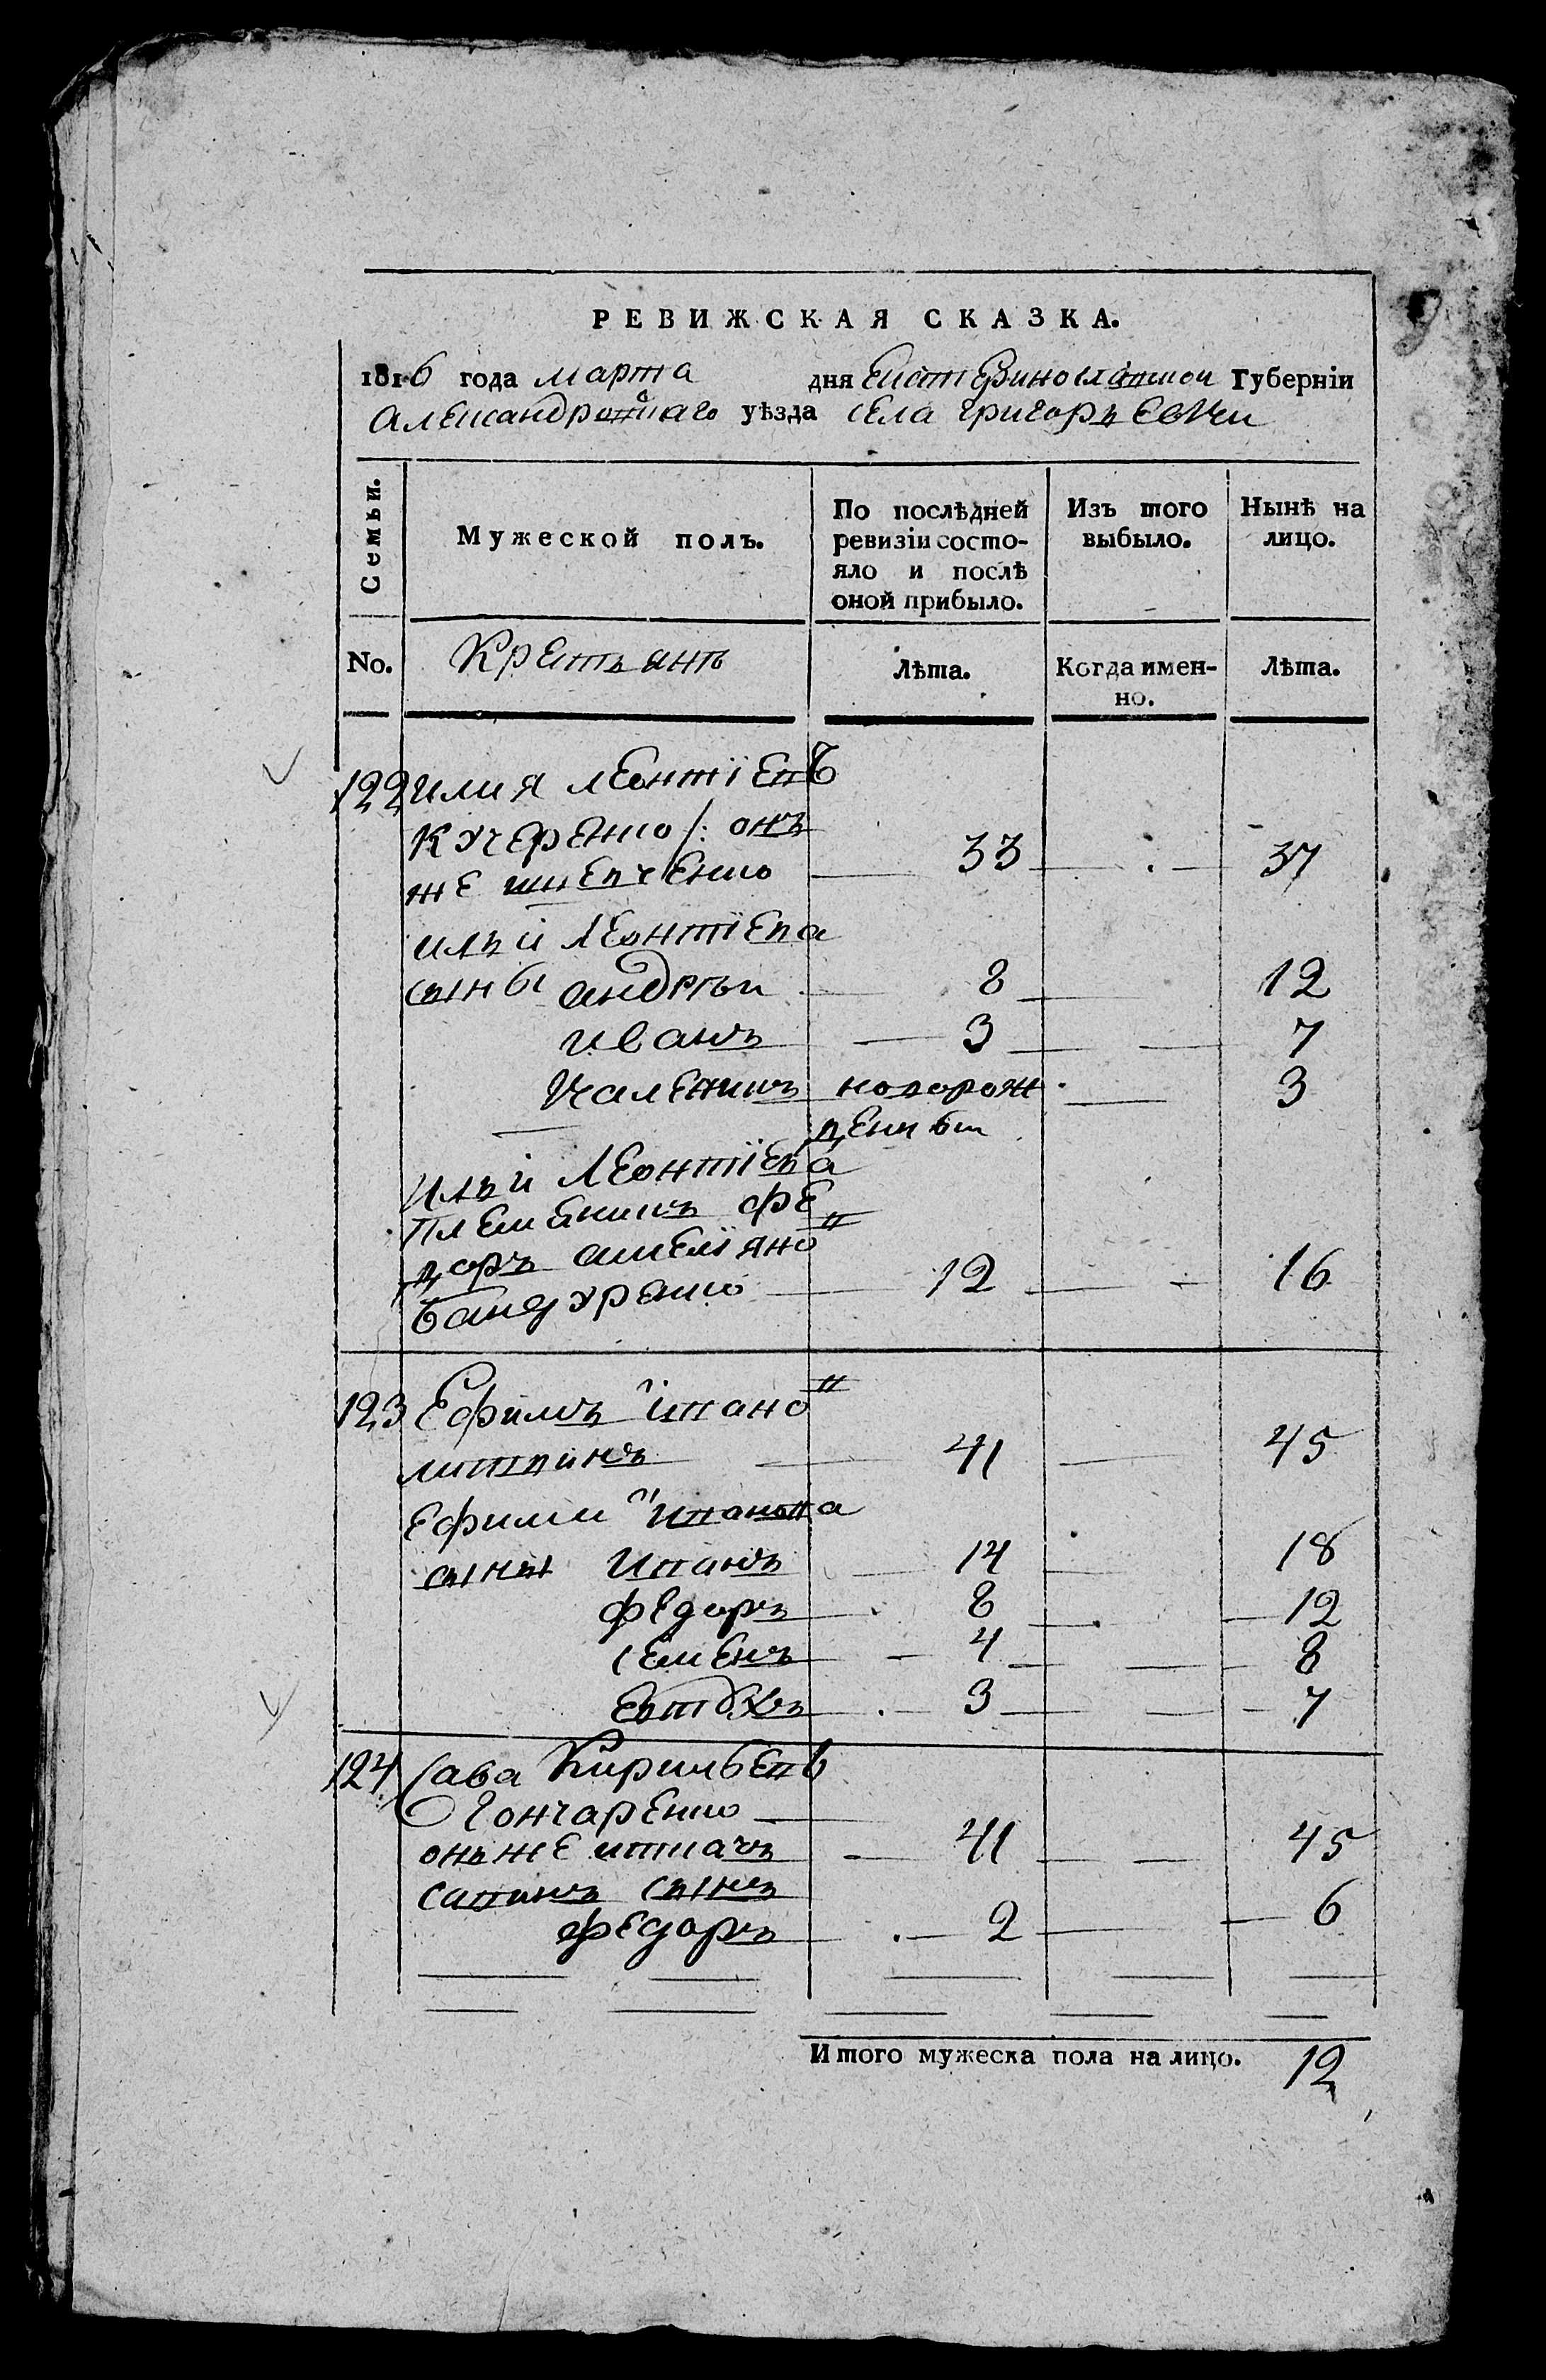 РЕВИЖСКАЯ СКАЗКА.
1816 года марта дня Екатеринославской Губерніи
Александровскаго уѣзда села Григорьевки
Семьи.
Мужеской полъ.
По послѣдней ревизіи состояло и послѣ оной прибыло.
Изъ того выбыло.
Нынѣ на лицо.
No. Крестьянъ Лѣта. Когда именно. Лѣта.
122 Илия Леонтіевъ
Кучеренко /: онъ
же Шевченко 33 37
Ильи Леонтіева
сыны Андрѣй 8 12
Иванъ 3 7
Каленикъ новорож 3
денный
Ильи Леонтіева
племянникъ Фе
доръ
Бандуренко 12 16
123 Ефимъ Ивановъ
Литвинъ 41 45
Ефима Иванова
сыны Иванъ 14 18
Федоръ 8 12
Семенъ 4 8
3 7
124 Сава Кирильевъ
Гончаренко
онъ же Ткачъ 41 45
Савинъ сынъ
Федоръ 2 6
Итого мужеска пола на лицо. 12